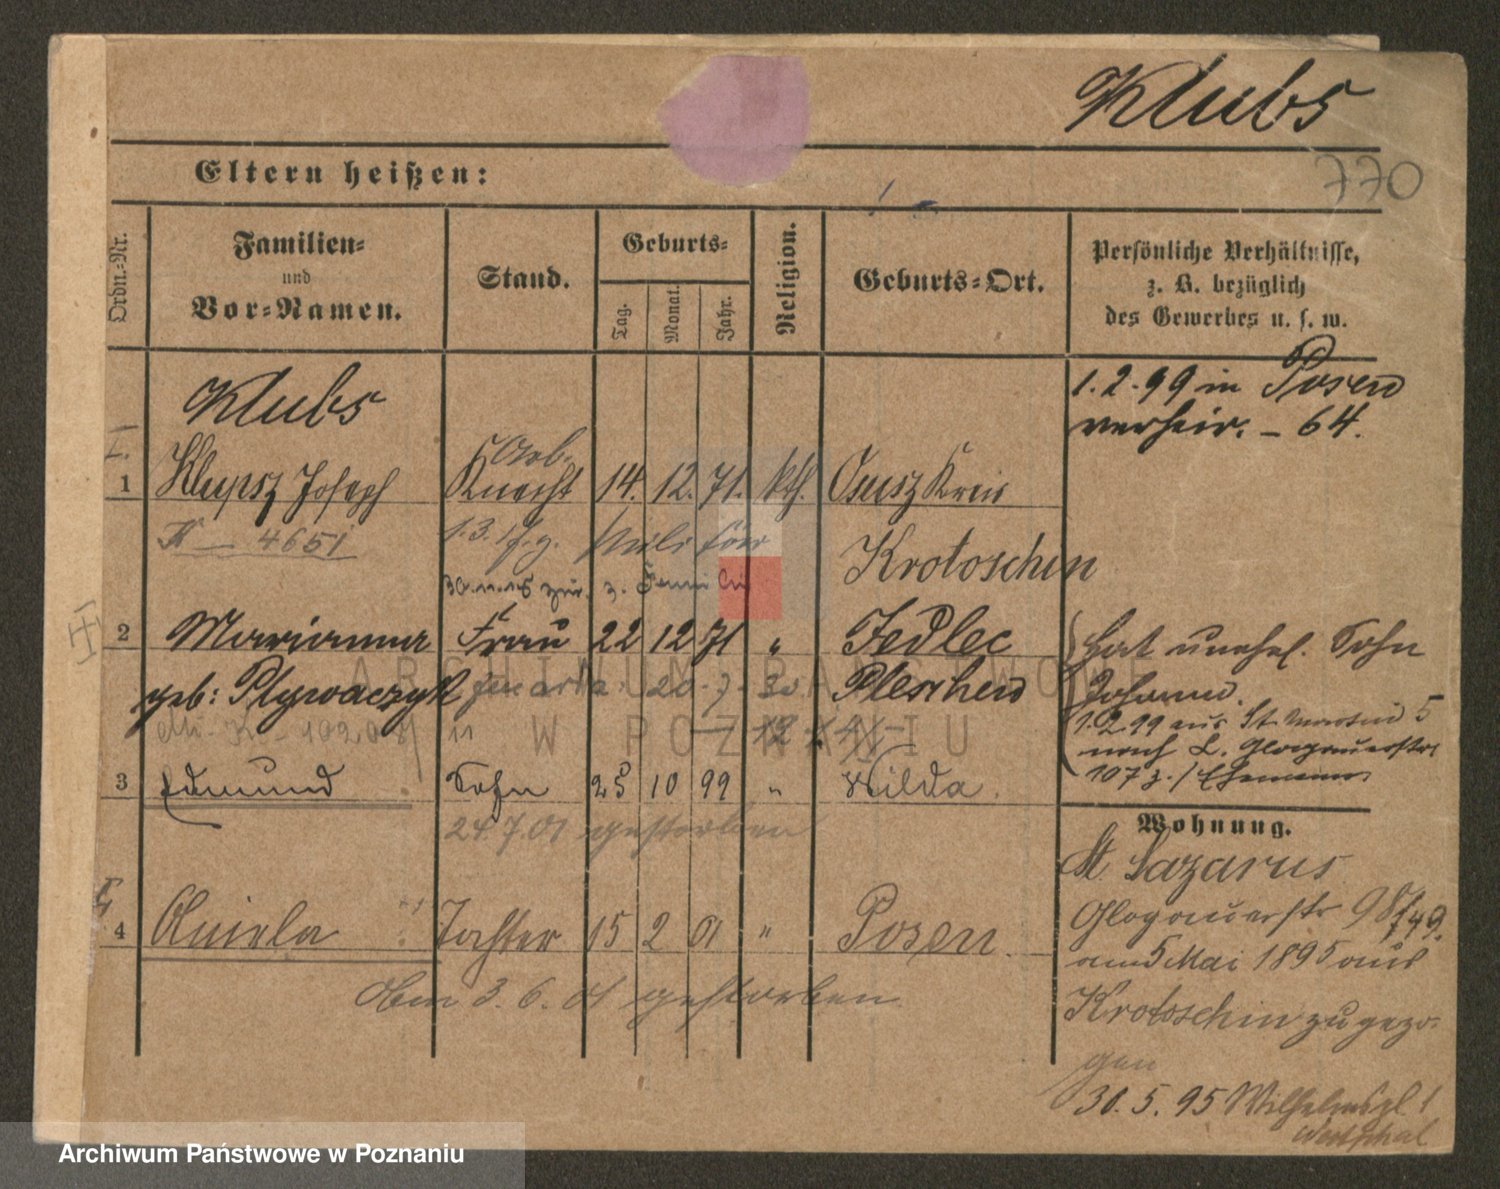 Klubs
770
Eltern heißen:
Ordn.=Nr.
Familien=
und
Vor=Namen.
Stand.
Geburts=
Tag.
Monat.
Jahr.
Religion.
Geburts=Ort.
Persönliche Verhältnisse,
z. B. bezüglich
des Gewerbes u. s. w.
Klubs
1.2.99 in Posen
verheir. – 64.
Arb.
1 Klupsz Joseph Knecht 14. 12. 71. kth. Kreis
K – 4651
Krotoschin
30.11.15 zur. z. Familie
2 Marianna Frau 22 12 71 " Jedlec
geb: Plywaczyk 20. 7. 30 Pleschen
hat unehel. Sohn
Johann.
1.2.99 aus St. Martin 5
nach L. Glogauerstr.
107 z. Ehemann
3 Edmund Sohn 25 10 99 " Wilda.
24.7.01 gestorben
Wohnung.
St Lazarus
Glogauerstr 98/49.
am 5 Mai 1895 aus
Krotoschin zugezo-
gen
4 Aniela Tochter 15 2 01 " Posen.
Am 3. 6. 01 gestorben
30. 5. 95 Wilhelmspl. 1
Westphal
ARCHIWUM PAŃSTWOWE
W POZNANIU
Archiwum Państwowe w Poznaniu